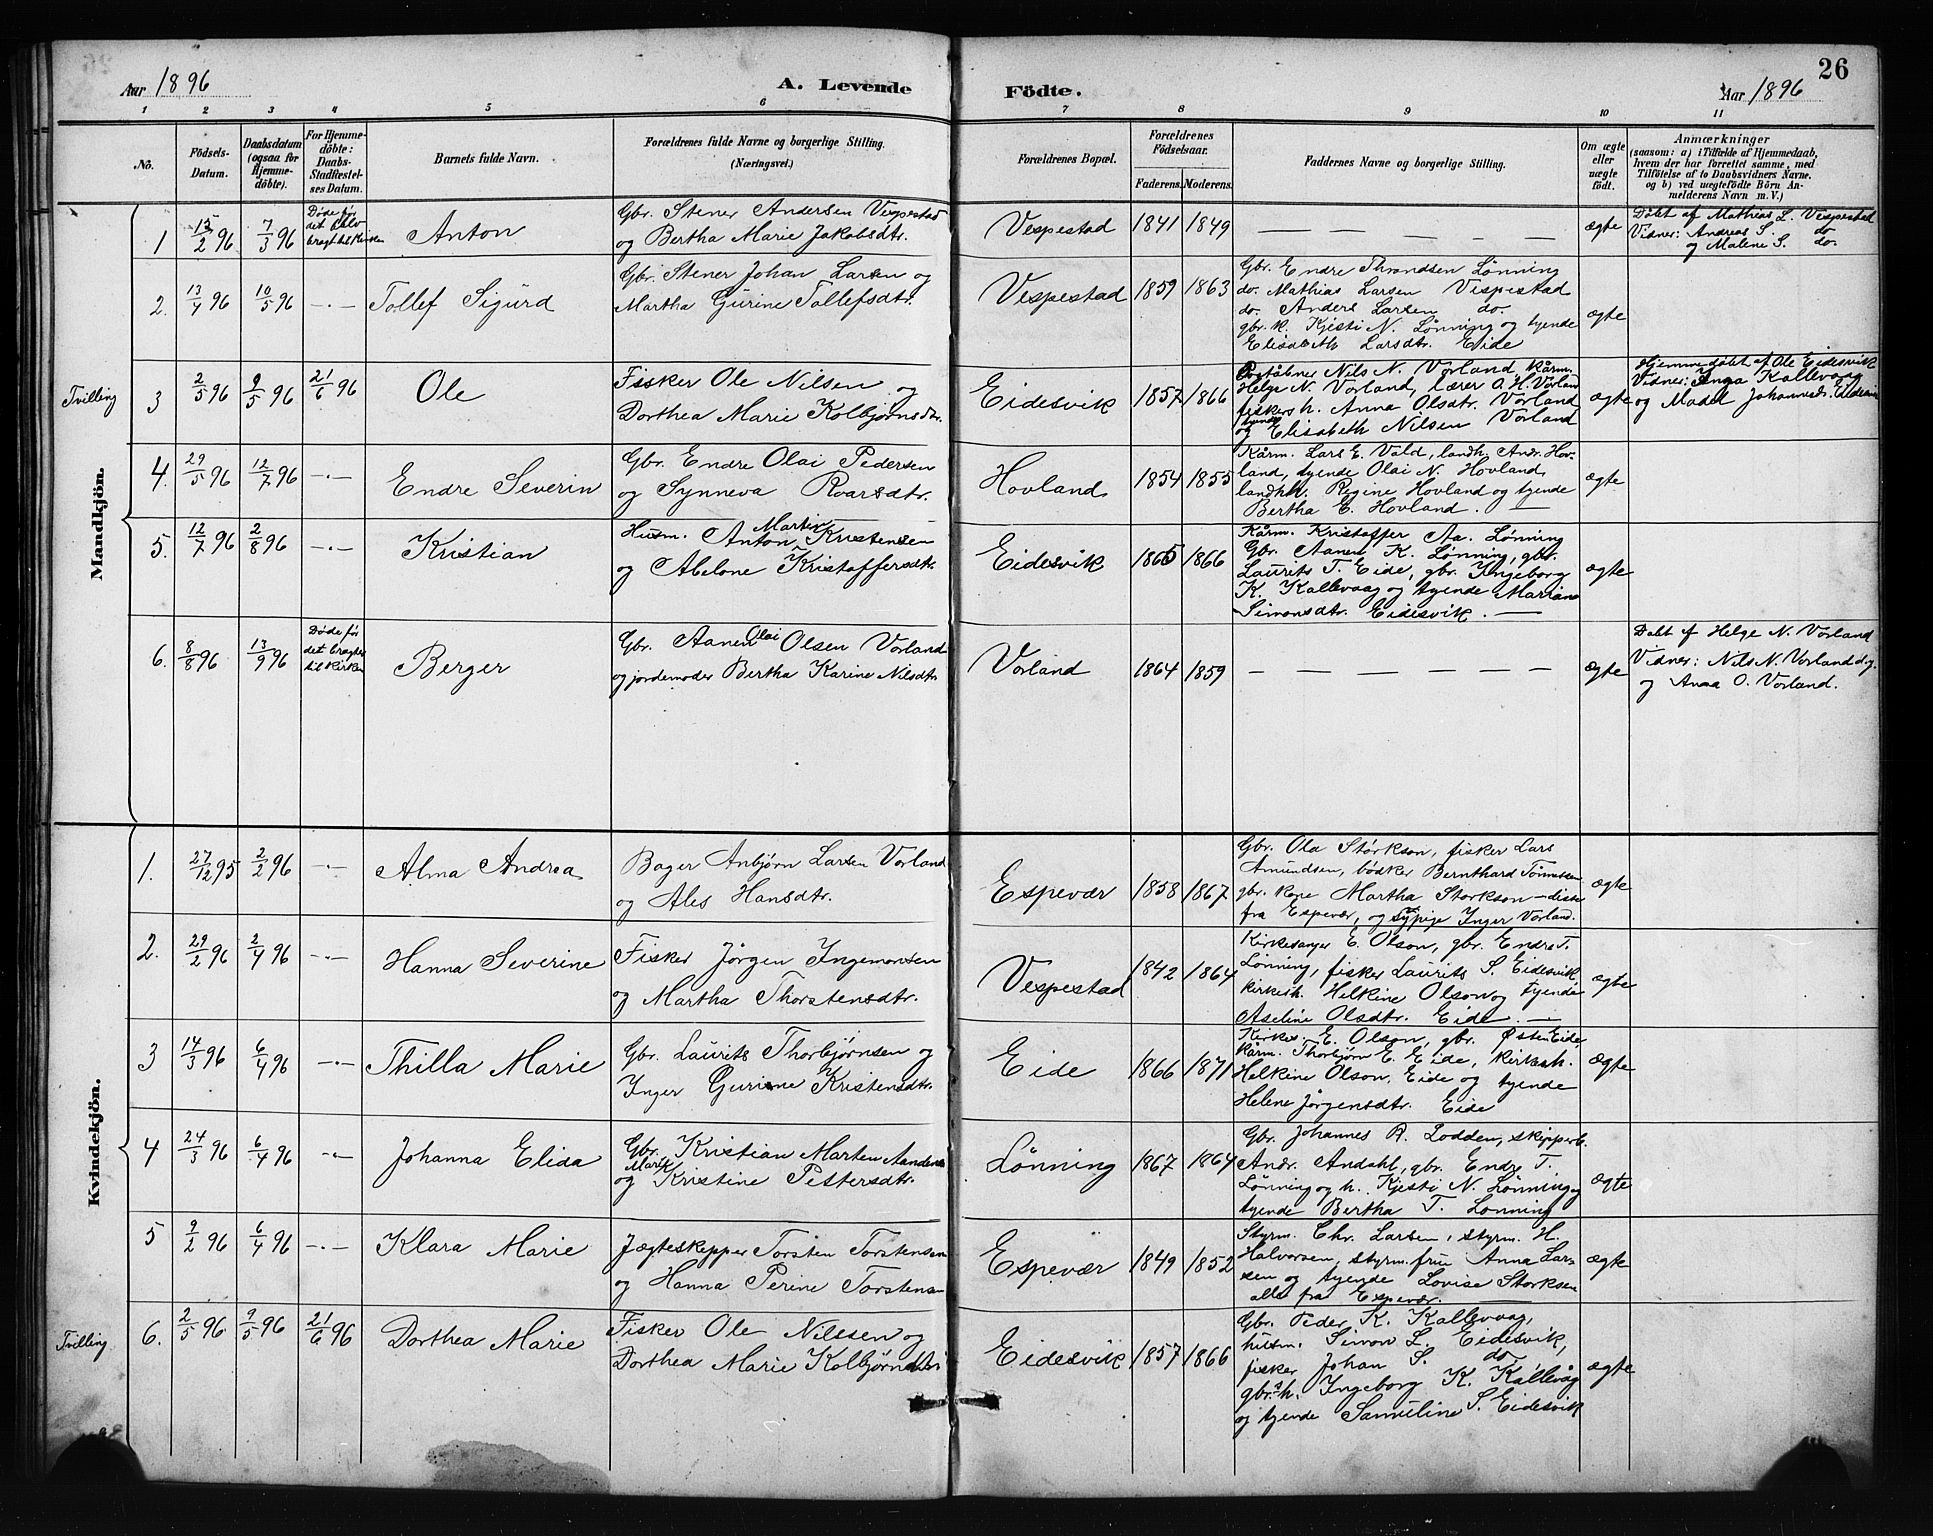 26
Aar 1896 A. Levende Födte. Aar 1896
1 2 3 4 5 6 7 8 9 10 11
No. Födsels-Datum. Daabsdatum (ogsaa for Hjemmedöbte). For Hjemmedöbte: Daabs-Stadfestelses Datum. Barnets fulde Navn. Forældrenes fulde Navne og borgerlige Stilling. (Næringsvei.) Forældrenes Bopæl. Forældrenes Födselsaar. Faderens. Moderens. Faddernes Navne og borgerlige Stilling. Om ægte eller uægte födt. Anmærkninger (saasom: a) i Tilfælde af Hjemmedaab, hvem der har forrettet samme, med Tilföielse af to Daabsvidners Navne, og b) ved uægtefödte Börn Anmelderens Navn m. V.)
Mandkjön.
1 15/2 96 7/3 96 Døde før det blev bragt til Kirken Anton
Gbr. Stener Andersen Vespestad
og Bertha Marie Jakobsdtr.
Vespestad 1841 1849 — — — — — ægte
Døbt af Mathias L. Vespestad
Vidner: Andreas S. do
og Malene S. do.
2. 13/4 96 10/5 96 -·- Tollef Sigurd
Gbr. Stener Johan Larsen og
Martha Gurine Tollefsdtr.
Vespestad 1859 1863
Gbr. Endre Throndsen Lønning
do. Mathias Larsen Vespestad
do. Anders Larsen do.
gbr.k. Kjesti N. Lønning og tyende
Elisabeth Larsdtr. Eide
ægte
Tvilling 3 2/5 96 9/5 96 21/6 96 Ole
Fisker Ole Nilsen og
Dorthea Marie Kolbjørnsdtr.
Eidesvik 1857 1866
Postaabner Nils N. Vorland, Kårm.
Helge N. Vorland, lærer O. H. Vorlan
fiskers h. Anna Olsdtr. Vorland
og tyende Elisabeth Nilsen Vorland
ægte
Hjemmedøbt af Ole Eidesvik
Vidner: Inga Kallevaag
og Madel Johannesdr. Eidesvik
4. 29/5 96 12/7 96 -·- Endre Severin
Gbr. Endre Olai Pedersen
og Synneva Roarsdtr.
Hovland 1854 1855
Kårm. Lars E. Vald, landh. Andr. Hov-
land, tyende Olai N. Hovland,
landhh. Regine Hovland og tyende
Bertha E. Hovland. —
ægte
5. 12/7 96 2/8 96 -·- Kristian
Husm. Anton Martin Kristensen
og Abelone Kristoffersdtr.
Eidesvik 1865 1866
Kårm. Kristoffer Aa. Lønning
Gbr. Aanen K. Lønning, gbr.
Laurits T. Eide, gbr. Ingeborg
K. Kallevaag og tyende Mariane
Simonsdtr. Eidesvik. —
ægte
6. 8/8 96 13/9 96 Døde før det bragtes til kirken Berger
Gbr. Aanen Olai Olsen Vorland
og jordemoder Bertha Karine Nilsdtr
Vorland 1864 1859 — — — — — — ægte
Døbt af Helge N. Vorland
Vidner: Nils N. Vorland d.y.
og Anna O. Vorland.
Kvindekjön.
1. 27/12 95 2/2 96 -·- Alma Andrea
Bager Anbjørn Larsen Vorland
og Ales Hansdtr.
Espevær 1858 1867
Gbr. Ola Størkson, fisker Lars
Amundsen, bødker Bernthard Tønnesen
gbr. kone Martha Størkson — disse
fra Espevær, og sypige Inger Vorland.
ægte
2. 29/2 96 2/4 96 -·- Hanna Severine
Fisker Jørgen Ingemonsen
og Martha Thorstensdtr.
Vespestad 1842 1864
Kirkesanger E. Olson, gbr. Endre T.
Lønning, fisker Laurits S. Eidesvik
kirkesh. Helkine Olson og tyende
Aseline Olsdtr. Eide. —
ægte
3 14/3 96 6/4 96 -·- Thilla Marie
Gbr. Laurits Thorbjørnsen og
Inger Gurine Kristensdtr.
Eide 1866 1871
Kirkes. E. Olson, gbr. Østen Eide
kårm. Thorbjørn E. Eide, kirkesh.
Helkine Olson, Eide og tyende
Helene Jørgensdtr. Eide
ægte
4 24/3 96 6/4 96 -·- Johanna Elida
Gbr. Kristian Marten Aandens
og Marti Kristine Pettersdtr.
Lønning 1867 1864
Gbr. Johannes A. Lodden, skipper
Andr. Andahl, gbr. Endre T.
Lønning og h. Kjesti N. Lønning og
tyende Bertha T. Lønning
ægte
5 9/2 96 6/4 96 -·- Klara Marie
Jægteskipper Torsten Torstensen
og Hanna Perine Torstensen
Espevær 1849 1852
Styrm. Chr. Larsen, styrm. H.
Halvorsen, styrm. frue Anna Lar-
sen og tyende Lovise Størksen
alle fra Espevær.
ægte
Tvilling 6. 2/5 96 9/5 96 21/6 96 Dorthea Marie
Fisker Ole Nilssen og
Dorthea Marie Kolbjørnsdtr
Eidesvik 1857 1866
Gbr. Peder K. Kallevaag,
husm. Simon L. Eidesvik,
fisker Johan S. do
gbr.h. Ingeborg K. Kallevåg
og tyende Samuline S. Eidesvik
ægte